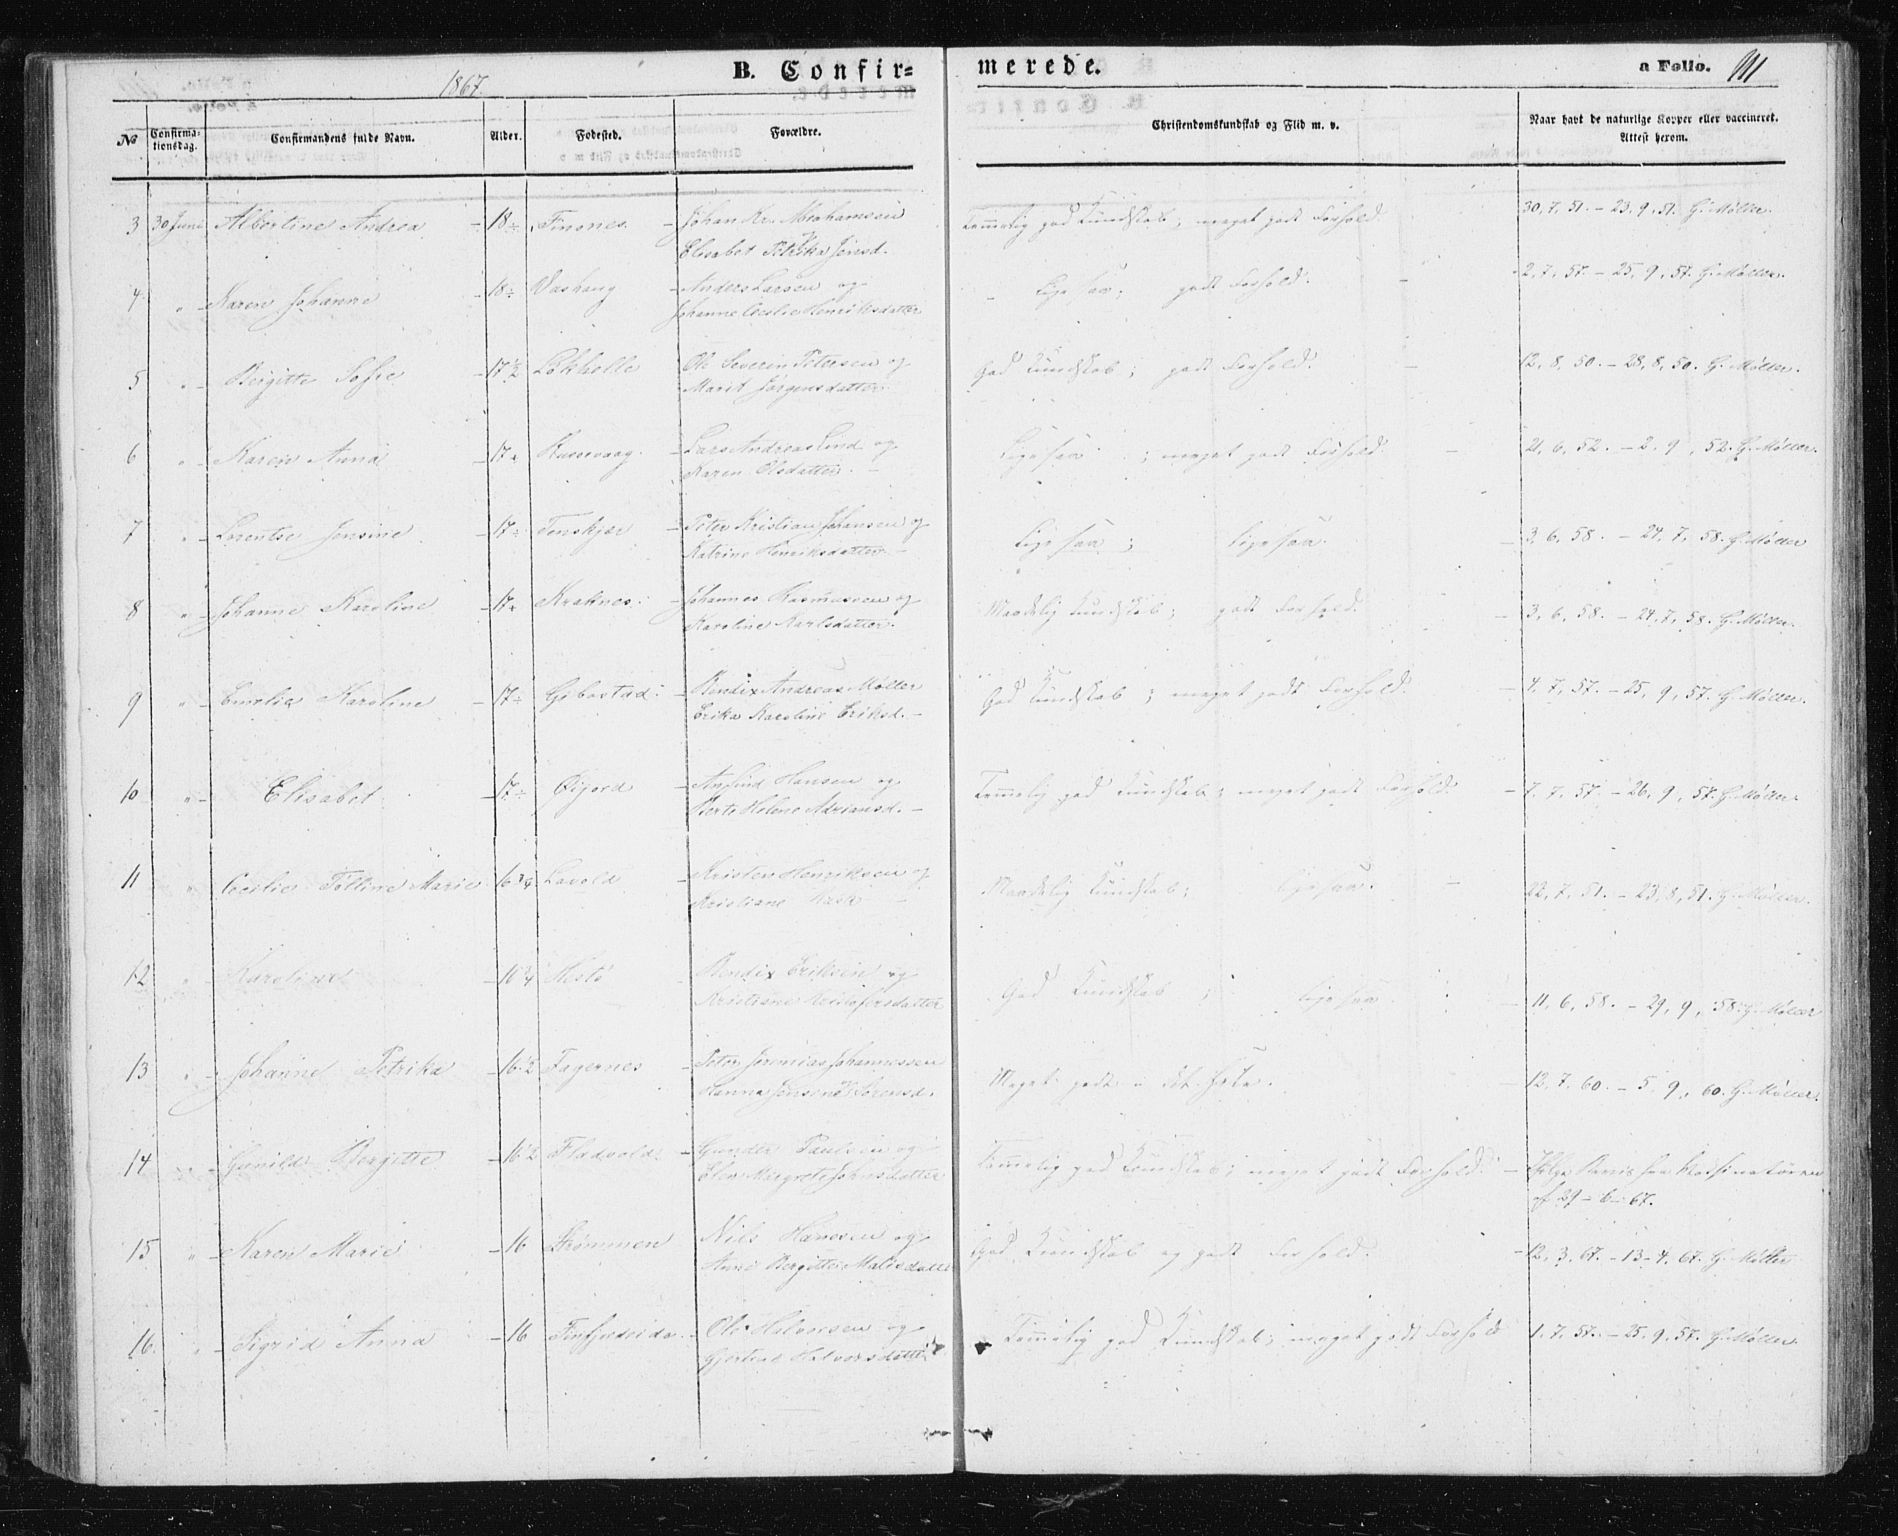 1867. B. Confir= merede. a Folio. 111
No Confirma-tionsdag. Confirmandens fulde Navn. Alder. Fødested. Forældre. Christendomskundskab og Flid m. v. Naar havt de naturlige Kopper eller vaccineret. Attest herom.
3 30 Juni Albertine Andrea - 18 Finsnes - Johan Kr. Abrahamsen Temmelig god Kundskab; meget godt Forhold. 30, 7, 51. - 23, 9, 51. G. Møller.
Elisabet Petrika Jensd.
4 " Karen Johanne 18 Vashaug - Anders Larsen og Ligesaa; godt Forhold. - 2, 7, 57. - 25, 9, 57. G. Møller.
Johanne Cecilie Henriksdatter
5 " Bergitte Sofie - 17½ Løkhelle Ole Severin Petersen og God Kundskab; godt Forhold. - 12, 8, 50. - 28, 8, 50. G. Møller.
Marit Jørgensdatter.
6 " Karen Anna - 17 Husevaag - Lars Andreas Lind og Ligesaa; meget godt Forhold. - 21, 6, 52. - 2, 9, 52. G. Møller.
Karen Olsdatter. -
7 " Lorentse Jensine - 17 Tenskjær - Peter Kristian Johansen og Ligesaa; Ligesaa. - 3, 6, 58. - 24, 7, 58. G. Møller
Katrine Henriksdatter. -
8 " Johanne Karoline - 17 Kraknes - Johannes Rasmussen og Maadelig Kundskab; godt Forhold. - 3, 6, 58. - 24, 7, 58. G. Møller.
Karoline Karlsdatter.
9 " Emelia Karoline - 17 Gibostad - Bendix Andreas Møller God Kundskab; meget godt Forhold. - 4, 7, 57. - 25, 9, 57. G. Møller.
Erika Karoline Eriksd. -
10 " Elisabet - 17 Øijord - Hansen og Temmelig god Kundskab; meget godt Forhold. - 7, 7, 57. - 26, 9, 57. G. Møller.
Berte Helene Adriansd. -
11 " Cecilie Marie 16 Lavold - Kristen Henriksen og Maadelig Kundskab; Ligesaa. - 22, 7, 51. - 23, 8, 51. G. Møller.
Kristiane
12 " Karoline - 16 - Bendix Eriksen og God Kundskab; Ligesaa - 11, 6, 58. - 29, 9, 58. G. Møller
Kristiane Kristofersdatter
13 " Johanne Petrika - 16½ Fagernes - Peter Jeremias Johannessen Meget godt i det Hele. - 12, 7, 60. - 5, 9, 60. G. Møller.
Hanna Jensine Sørensd.
14 " Gunild Bergitte - 16½ Fladvold - Gunder Paulsen og Temmelig god Kundskab; meget godt Forhold. -
Elen Margrete Johnsdatter af 29 - 6 - 67.
15 " Karen Marie - 16 Strømmen Nils Hansen og God Kundskab og godt Forhold. - 12, 3, 67. - 13 - 4, 67. G. Møller
Anne Bergitte
16. " Sigrid Anna - 16 Finfjordeidet - Ole Halvorsen og Temmelig god Kundskab; meget godt Forhold 1, 7, 57. - 25, 9, 57. G. Møller.
Gjertine Halvorsdatter